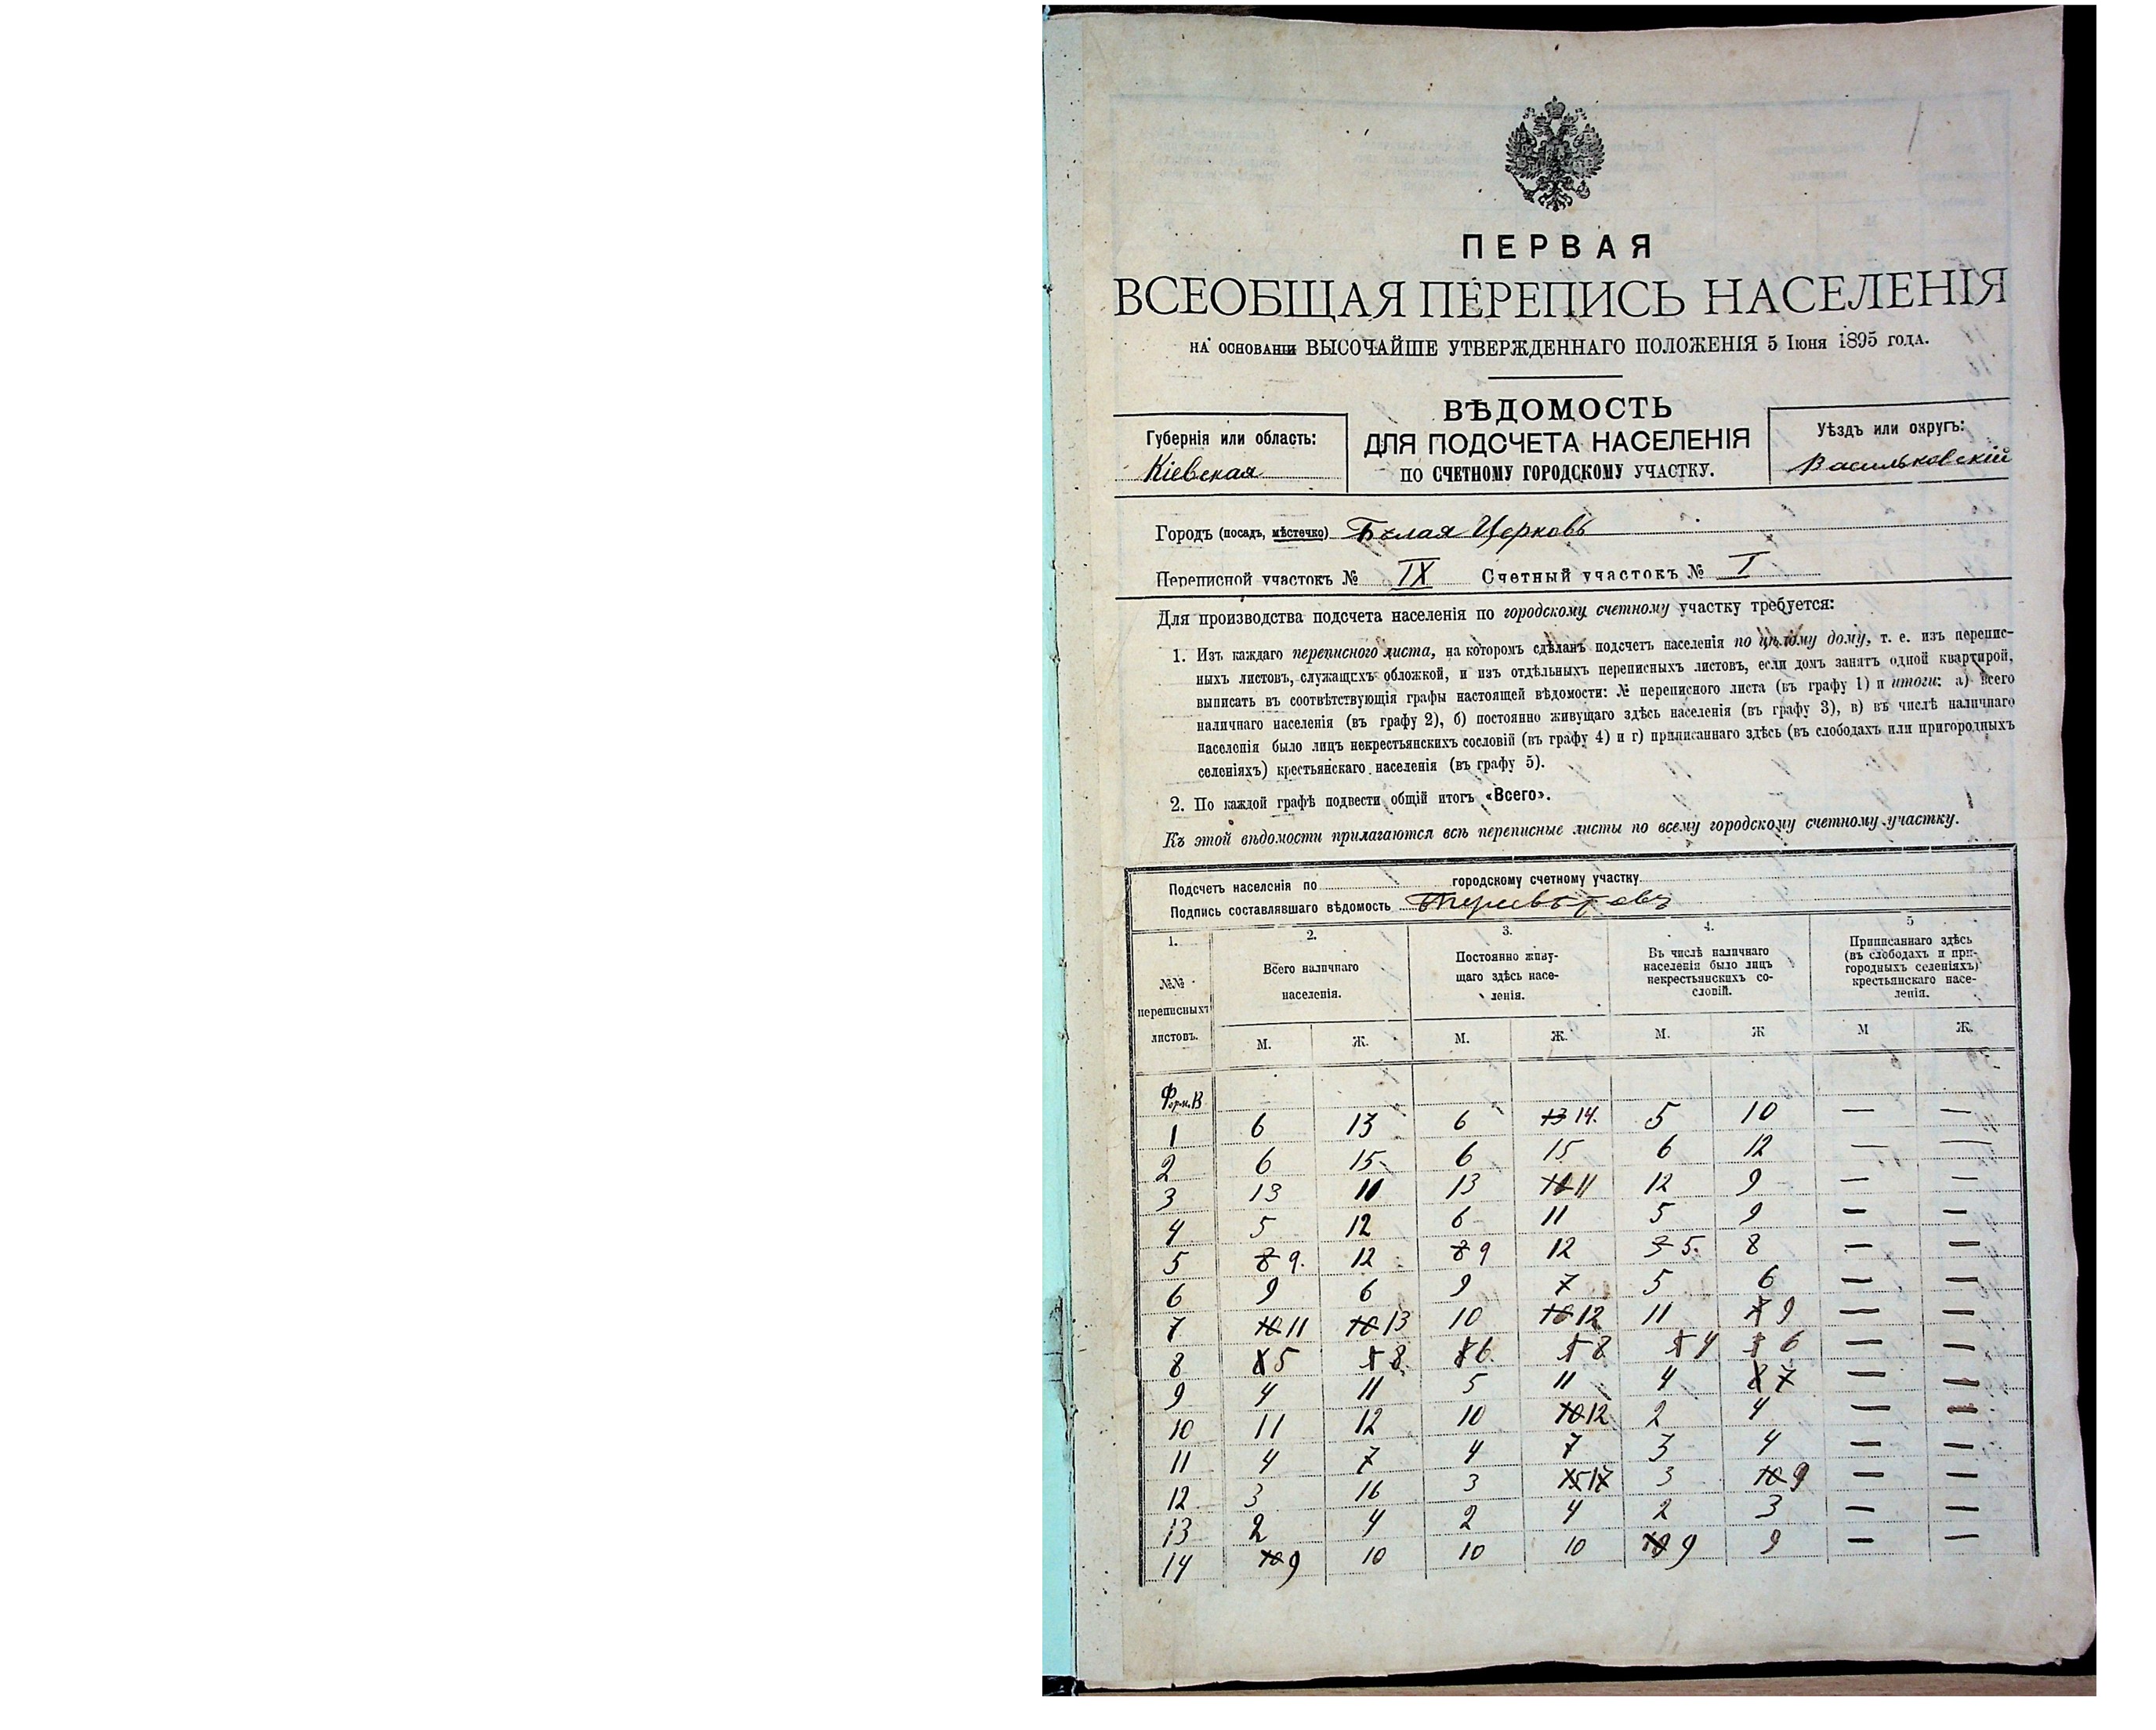 ПЕРВАЯ
ВСЕОБЩАЯ ПЕРЕПИСЬ НАСЕЛЕНІЯ
НА ОСНОВАНІИ ВЫСОЧАЙШЕ УТВЕРЖДЕННАГО ПОЛОЖЕНІЯ 5 Іюня 1895 ГОДА.
ВѢДОМОСТЬ
ДЛЯ ПОДСЧЕТА НАСЕЛЕНІЯ
ПО СЧЕТНОМУ ГОРОДСКОМУ УЧАСТКУ.
Губернія или область:
Кіевская
Уѣздъ или округъ:
Васильковскій
Городъ (посадъ, мѣстечко) Бѣлая Церковь
Переписной участокъ № IX Счетный участокъ № I
Для производства подсчета населенія по городскому счетному участку требуется:
1. Изъ каждаго переписного листа, на которомъ сдѣланъ подсчетъ населенія по цѣлому дому, т. е. изъ перепис-
ныхъ листовъ, служащихъ обложкой, и изъ отдѣльныхъ переписныхъ листовъ, если домъ занятъ одной квартирой,
выписать въ соотвѣтствующія графы настоящей вѣдомости: № переписного листа (въ графу 1) и итоги: а) всего
наличнаго населенія (въ графу 2), б) постоянно живущаго здѣсь населенія (въ графу 3), в) въ числѣ наличнаго
населенія было лицъ некрестьянскихъ сословій (въ графу 4) и г) приписаннаго здѣсь (въ слободахъ или пригородныхъ
селеніяхъ) крестьянскаго населенія (въ графу 5).
2. По каждой графѣ подвести общій итогъ «Всего».
Къ этой вѣдомости прилагаются всѣ переписные листы по всему городскому счетному участку.
Подсчетъ населенія по городскому счетному участку
Подпись составлявшаго вѣдомость
1. 2. 3. 4. 5
№№
переписныхъ
листовъ.
Всего наличнаго
населенія.
Постоянно живу-
щаго здѣсь насе-
ленія.
Въ числѣ наличнаго
населенія было лицъ
некрестьянскихъ со-
словій.
Приписаннаго здѣсь
(въ слободахъ и при-
городныхъ селеніяхъ)
крестьянскаго насе-
ленія.
М. Ж. М. Ж. М. Ж М Ж.
Форм. В
1 6 13 6 13 14. 5 10 — —
2 6 15 6 15 6 12 — —
3 13 11 13 10 11 12 9 — —
4 5 12 6 11 5 9 — —
5 8 9. 12 8 9 12 3 5. 8 — —
6 9 6 9 7 5 6 — —
7 10 11 10 13 10 10 12 11 9 — —
8 5 8. 6. 8 4 6 — —
9 4 11 5 11 4 8 7 — —
10 11 12 10 10 12 2 4 — —
11 4 7 4 7 3 4 — —
12 3 16 3 15 17 3 10 9 — —
13 2 4 2 4 2 3 — —
14 10 9 10 10 10 10 9 9 — —